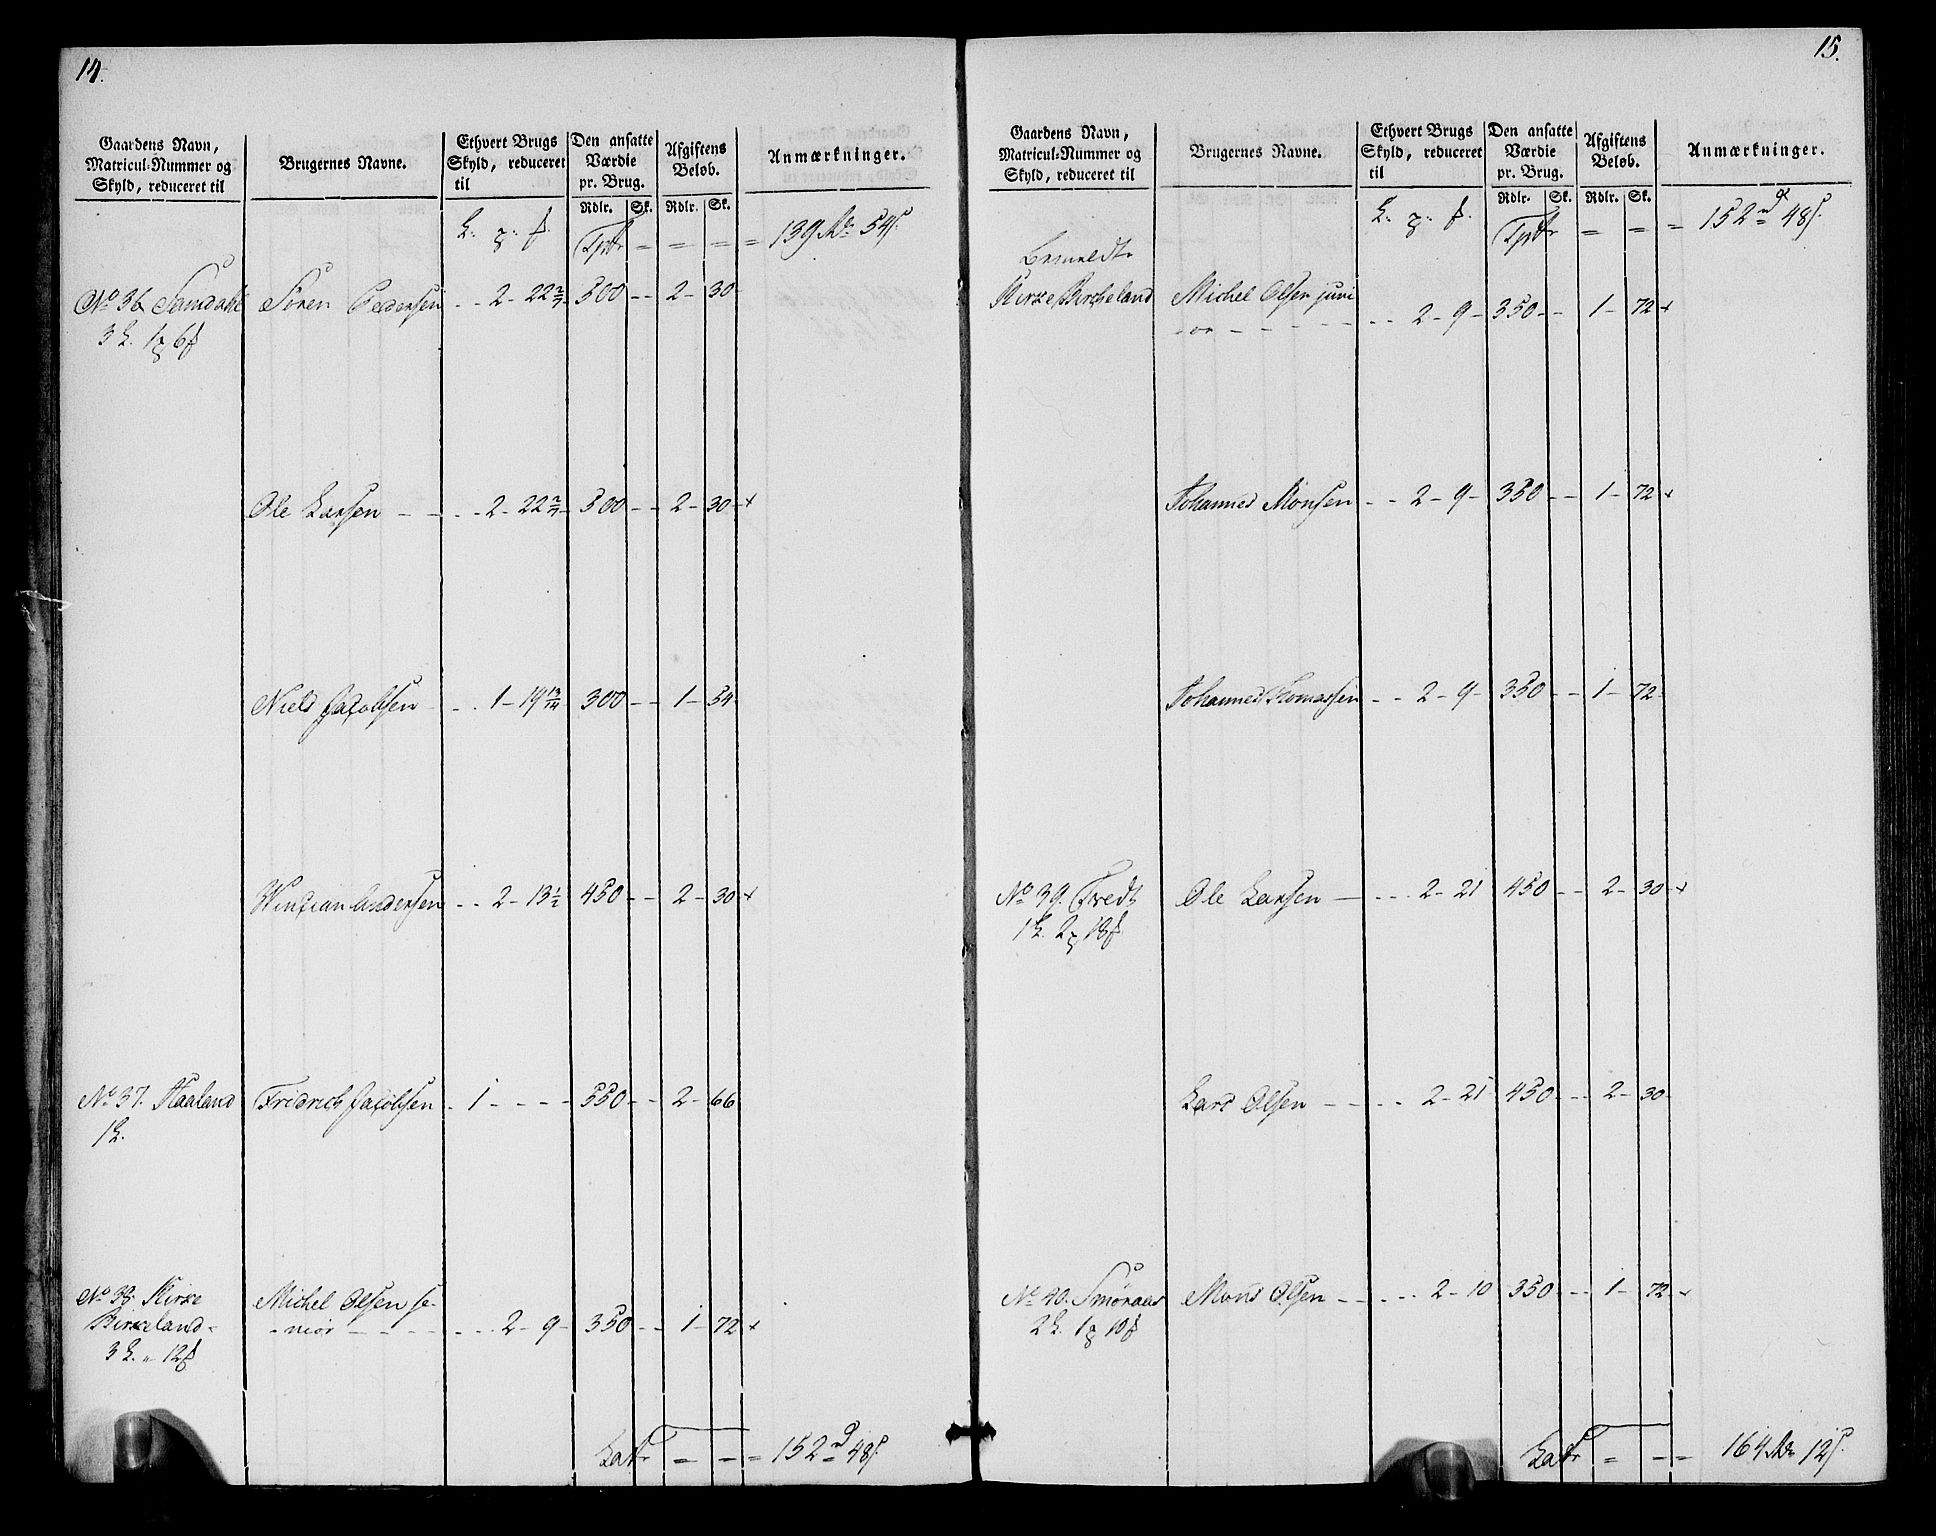 14.
Gaardens Navn, Matricul-Nummer og Skyld, reduceret til
Brugernes Navne.
Ethvert Brugs Skyld, reduceret til
Den ansatte Værdie pr. Brug.
Afgiftens Beløb.
Anmærkninger.
Rdlr. Sk. Rdlr. Sk.
L. Tprt = = = = 139 Rd 54 s.
No 36 Sandahl Søren Pedersen - - 2 - 22 2/7 - 500 - - 2 - 30 -
Ole Larsen - - - - 2 - 22 2/7 - 500 - - 2 - 30 - +
Niels Jacobsen - - 1 - 19 13/14 300 - - 1 - 54 -
Andersen - - 2 - 13 1/2 450 - - 2 - 30 - +
No 37. Haaland Fridrich Jacobsen - 1 - - - - 550 - - 2 - 66
1 L.
No 38. Kirke Michel Olsen se-
Birkeland - - nior - - - - - - 2 - 9 - 350 - - 1 - 72 +
3 L. " 12
Latr = = = 152 48 s.
15.
Gaardens Navn, Matricul-Nummer og Skyld, reduceret til
Brugernes Navne.
Ethvert Brugs Skyld, reduceret til
Den ansatte Værdie pr. Brug.
Afgiftens Beløb.
Anmærkninger.
Rdlr. Sk. Rdlr. Sk.
L. Tprt = = = 152 48 s.
Bemeldte
Kirke Bircheland Michel Olsen juni
- or - - - - - - - 2 - 9 - 350 - - 1 - 72 +
Johannes Monsen - - 2 - 9 - 350 - - 1 - 72 +
Johannes Thomassen - - 2 - 9 - 350 - - 1 - 72 -
No 39. Tvedt Ole Larsen - - - - 2 - 21 450 - - 2 - 30 - +
1 L. 2 18
Lars Olsen - - - - 2 - 21 450 - - 2 - 30 -
No 40. Smøraas Mons Olsen - - - - 2 - 10 350 - - 1 - 72 - +
2 L. 1 10
Latr = - - = 164 Rd 12 s.